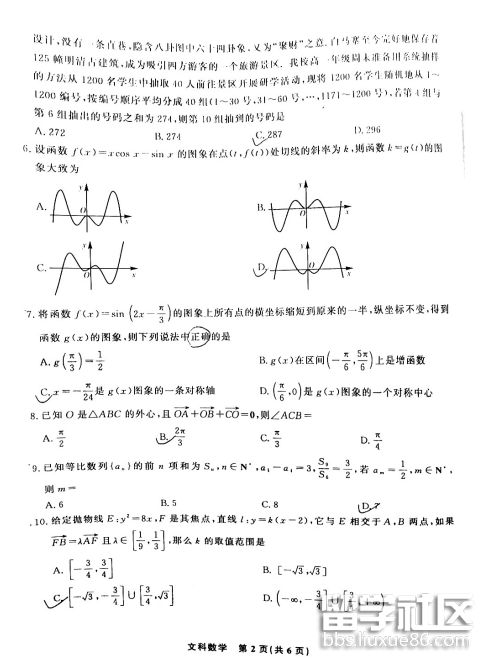 设计,没有一条直巷,隐含八卦图中六十四卦象,又为“聚财”之意.白马寨至今完好地保存着
125幢明清古建筑,成为吸引四方游客的一个旅游景区.我校高一年级周末准备用系统抽样
的方法从1200名学生中抽取40人前往景区开展研学活动,现将1200名学生随机地从1~
1200编号,按编号顺序平均分成40组(1~30号,31~60号,…,1171~1200号),若第4组与
第6组抽出的号码之和为274,则第10组抽到的号码是
A. 272 B. 274 C. 287 D. 296
6. 设函数 f(x)=xcos x−sin x 的图象在点(t,f(t))处切线的斜率为 k,则函数 k=g(t)的图
象大致为
A. y O x B. y O x
C. y O x D. y O x
7. 将函数 f(x)=sin(2x−π/3)的图象上所有点的横坐标缩短到原来的一半,纵坐标不变,得到
函数 g(x)的图象,则下列说法中正确的是
A. g(π/3)=1/2 B. g(x)在区间(−π/6,5π/6)上是增函数
C. x=−π/24是 g(x)图象的一条对称轴 D. (π/6,0)是 g(x)图象的一个对称中心
8. 已知 O 是△ABC 的外心,且OA+OB+CO=0,则∠ACB=
A. π/2 B. 2π/3 C. π/3 D. π/4
9. 已知等比数列{aₙ}的前 n 项和为 Sₙ,n∈N*,a₄−a₁=3,S₉/S₆=3/2,若 aₘ=1/2,m∈N*,
则 m=
A. 6 B. 5 C. 8 D. 7
10. 给定抛物线 E:y²=8x,F 是其焦点,直线 l:y=k(x−2),它与 E 相交于 A,B 两点,如果
FB=λAF 且 λ∈[1/9,1/3],那么 k 的取值范围是
A. [−3/4,3/4] B. [−√3,√3]
C. [−√3,−3/4]∪[3/4,√3] D. (−∞,−3/4]∪[3/4,∞)
文科数学 第 2 页(共 6 页)
留学社区
bbs.liuxue86.com